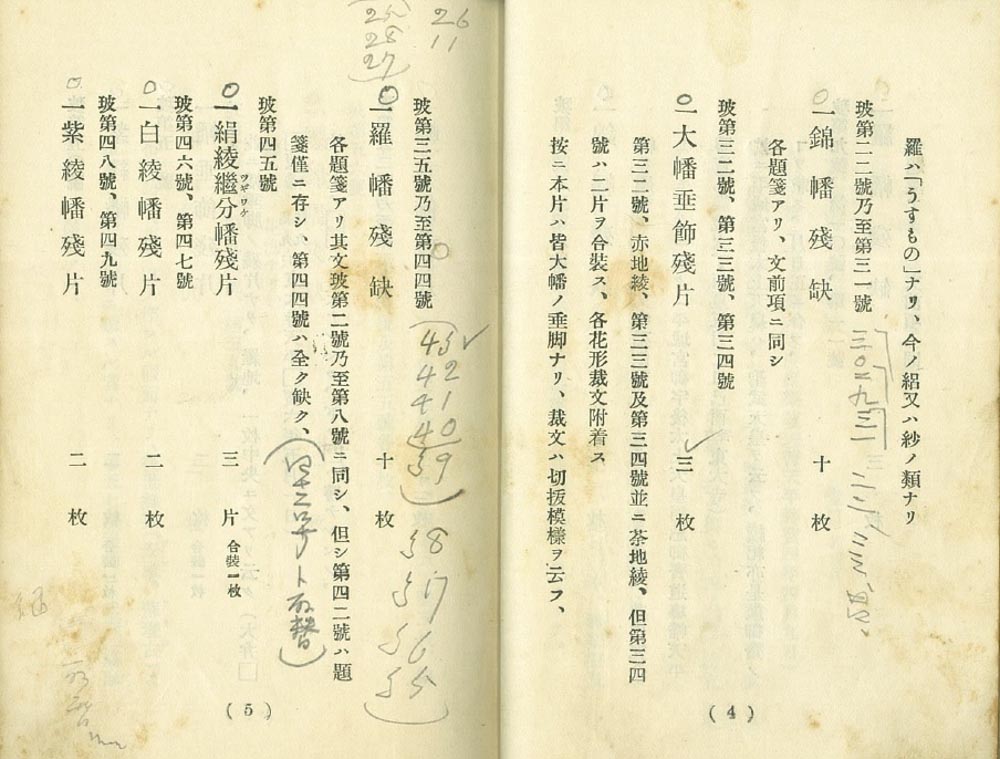 羅ハ「うすもの」ナリ、今ノ絽又ハ紗ノ類ナリ
玻第二二號乃至第三一號
一錦幡殘缺 十枚
各題箋アリ、文前項ニ同シ
玻第三二號、第三三號、第三四號
一大幡垂飾殘片 三枚
第三二號、赤地綾、第三三號及第三四號並ニ茶地綾、但第三四
號ハ二片ヲ合裝ス、各花形裁文附着ス
按ニ本片ハ皆大幡ノ垂脚ナリ、裁文ハ切拔模樣ヲ云フ、
(4)
25 26
28 11
27
玻第三五號乃至第四四號
43
42
41
40
39
38
37
36
35
一羅幡殘缺 十枚
各題箋アリ其文玻第二號乃至第八號ニ同シ、但シ第四二號ハ題
箋僅ニ存シ、第四四號ハ全ク缺ク、
玻第四五號
一絹綾繼分幡殘片 三片 合裝一枚
ツギワケ
玻第四六號、第四七號
一白綾幡殘片 二枚
玻第四八號、第四九號
一紫綾幡殘片 二枚
(5)